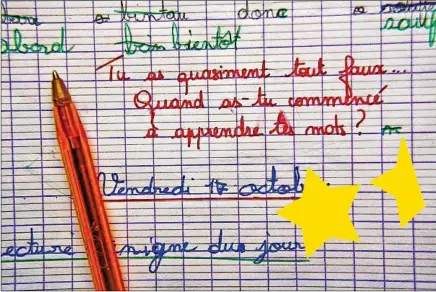 bintau donc
abord bon bientôt sauf
Tu as quasiment tout faux...
Quand as-tu commencé
à apprendre tes mots ?
Vendredi 17 octob
ecture nigne du jour